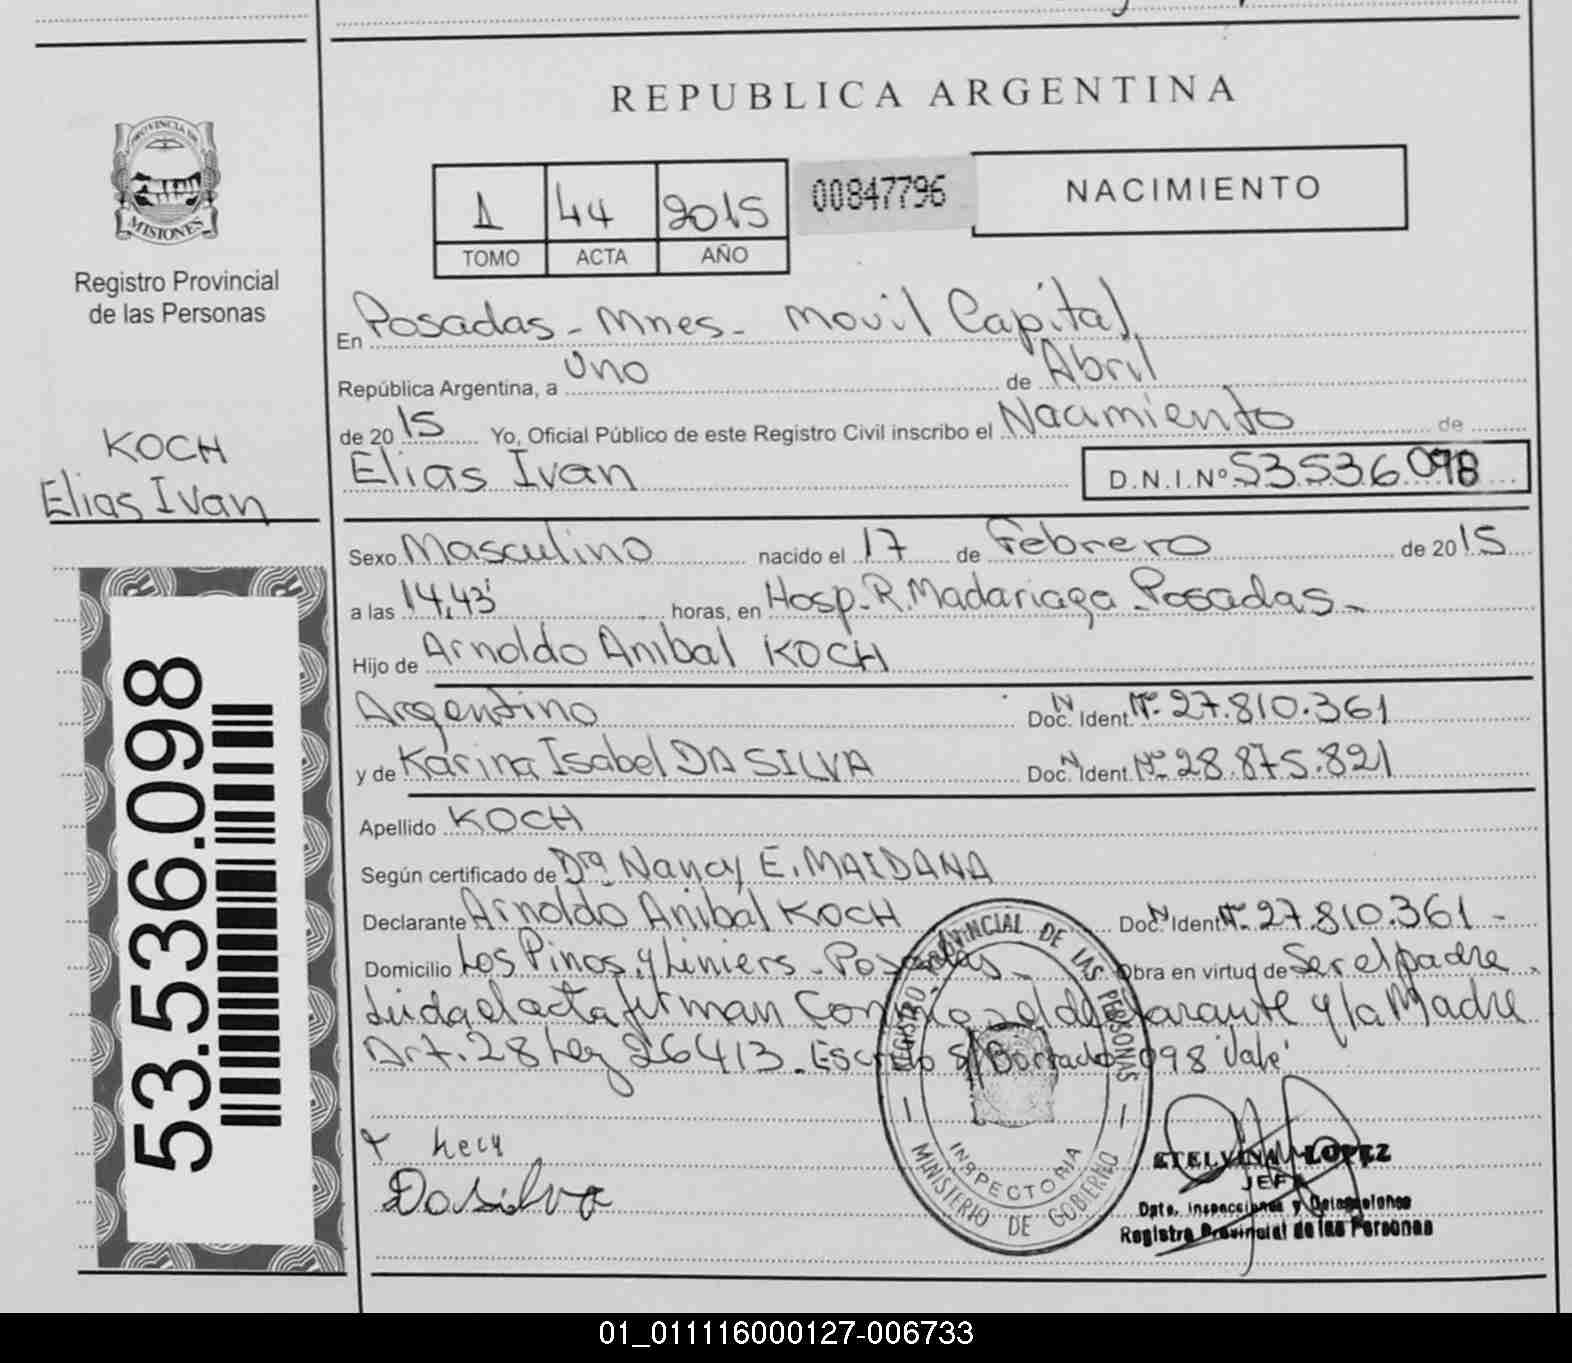 REPUBLICA ARGENTINA
PROVINCIA DE
MISIONES
Registro Provincial
de las Personas
1 44 2015
TOMO ACTA AÑO
00847796
NACIMIENTO
En Posadas - Mnes - Movil Capital
República Argentina, a Uno de Abril
de 2015 Yo, Oficial Público de este Registro Civil inscribo el Nacimiento de
Elias Ivan D.N.I.Nº 53536098
KOCH
Elias Ivan
Sexo Masculino nacido el 17 de Febrero de 2015
a las 14,43' horas, en Hosp. R. Madariaga - Posadas -
Hijo de Arnoldo Anibal KOCH
Argentino Doc. N Ident. Nº 27.810.361
y de Karina Isabel DA SILVA Doc. N Ident. Nº 28.875.821
Apellido KOCH
Según certificado de Dra Nancy E. MAIDANA
Declarante Arnoldo Anibal KOCH Doc. N Ident. Nº 27.810.361 -
Domicilio Los Pinos y Liniers - Posadas - Obra en virtud de Ser el padre.
Leida el acta firman Conmigo el declarante y la Madre
Art. 28 Ley 26413 - Escrito S/ Borrado 098 'Vale'
Dasilva
53.536.098
REGISTRO PROVINCIAL DE LAS PERSONAS
INSPECTORIA
MINISTERIO DE GOBIERNO
ETELVINA LOPEZ
JEFA
Dpto. Inspecciones y Delegaciones
Registro Provincial de las Personas
01_011116000127-006733